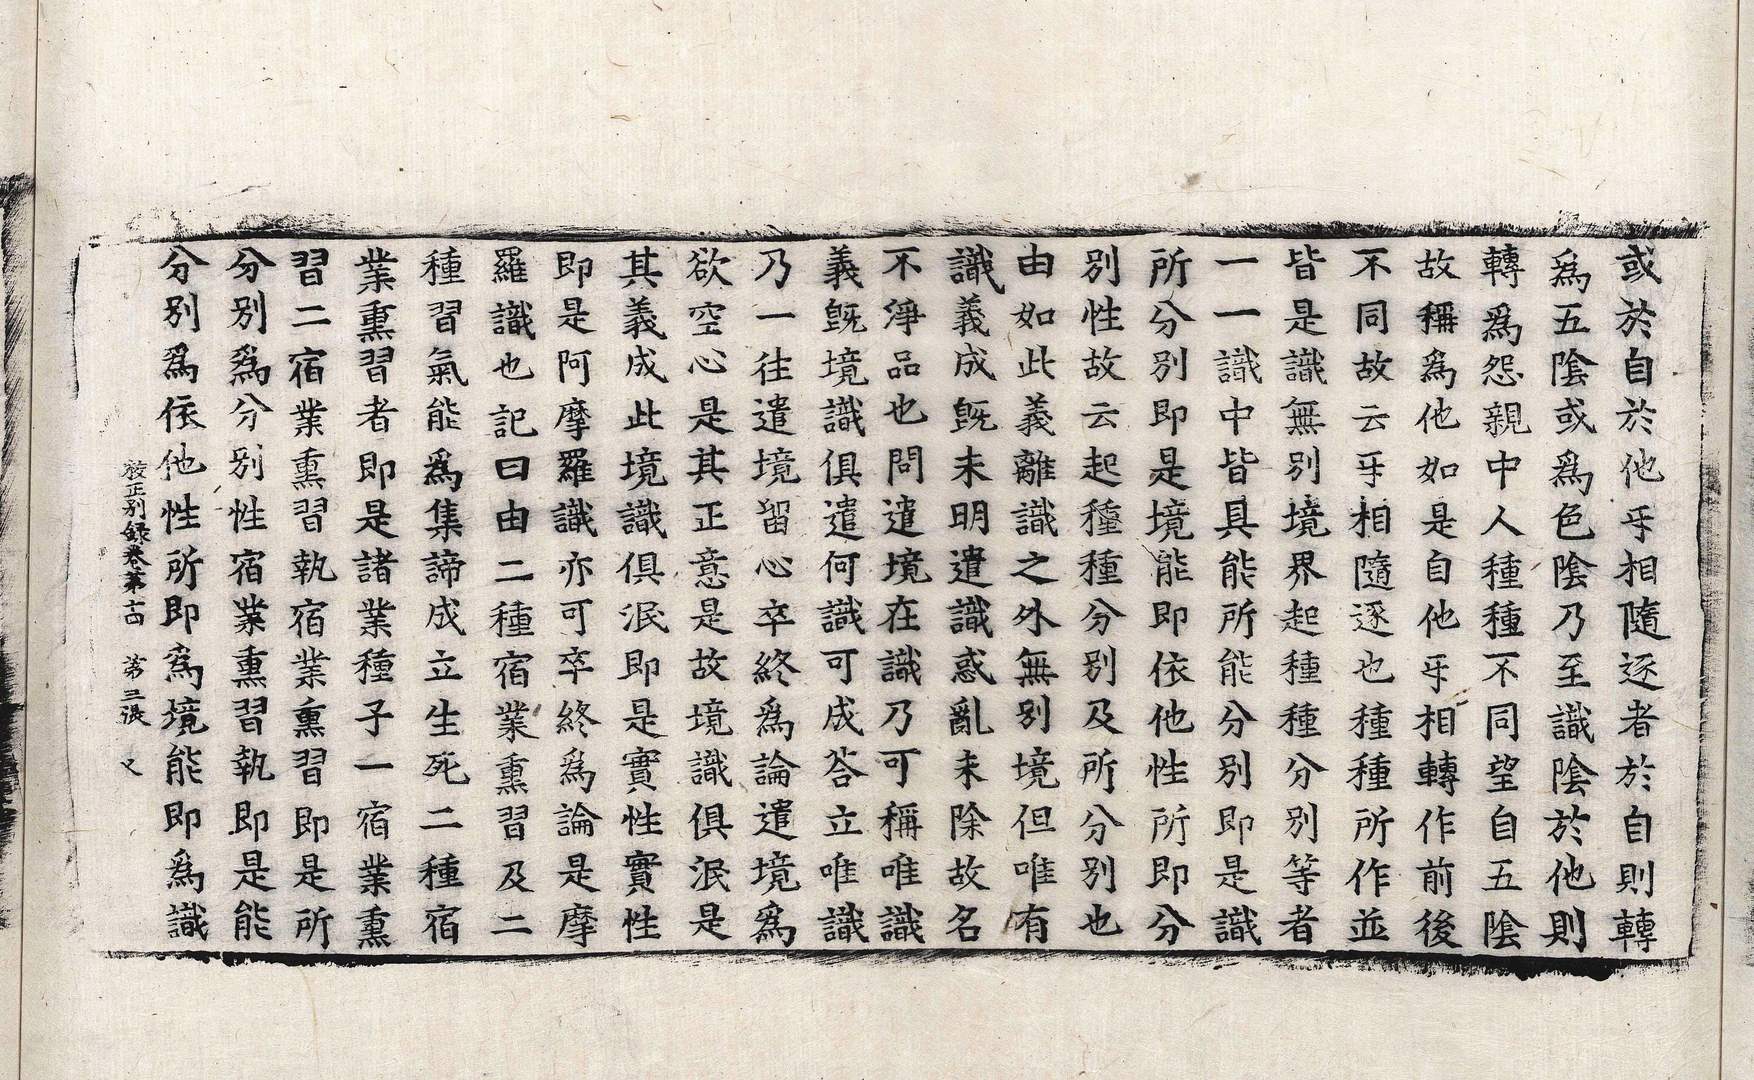 或於自於他㸦相隨逐者於自則轉
爲五陰或爲色陰乃至識陰於他則
轉爲怨親中人種種不同望自五陰
故稱爲他如是自他㸦相轉作前後
不同故云㸦相隨逐也種種所作並
皆是識無別境界起種種分別等者
一一識中皆具能所能分別即是識
所分別即是境能即依他性所即分
別性故云起種種分別及所分別也
由如此義離識之外無別境但唯有
識義成旣未明遣識惑亂未除故名
不淨品也問遣境在識乃可稱唯識
義旣境識俱遣何識可成荅立唯識
乃一往遣境留心卒終爲論遣境爲
欲空心是其正意是故境識俱泯是
其義成此境識俱泯即是實性實性
即是阿摩羅識亦可卒終爲論是摩
羅識也記曰由二種宿業熏習及二
種習氣能爲集諦成立生死二種宿
業熏習者即是諸業種子一宿業熏
習二宿業熏習執宿業熏習即是所
分別爲分別性宿業熏習執即是能
分別爲依他性所即爲境能即爲識
校正別錄卷第十四　第三張　又